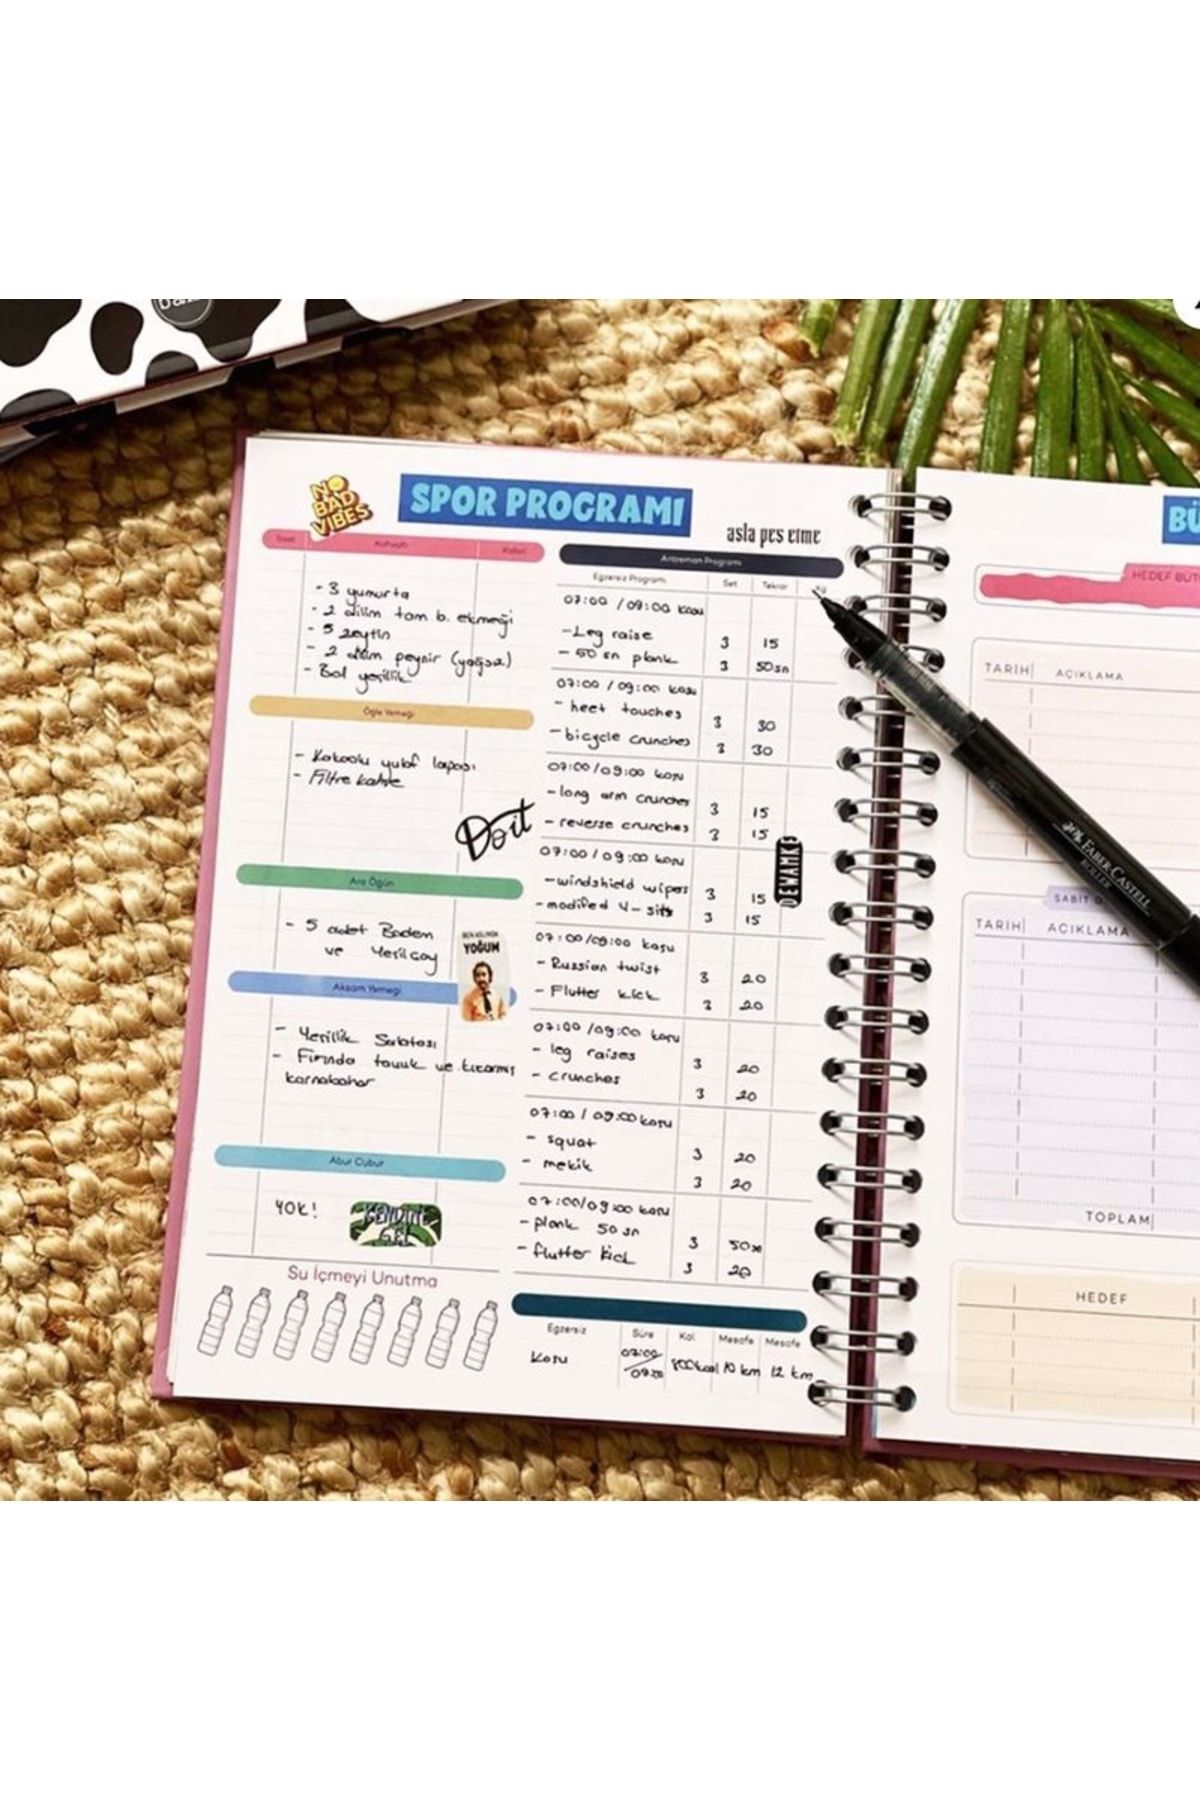 NO
BAD
VIBES
SPOR PROGRAMI
asla pes etme
Kahvaltı
Kalori
- 3 yumurta
- 2 dilim tam b. ekmeği
- 5 zeytin
- 2 dilim peynir (yağsız)
- Bol yeşillik
Öğle Yemeği
- Kakaolu yulaf lapası
- Filtre kahve
Do it
Ara Öğün
- 5 adet Badem
ve Yeşilçay
YOĞUM
Akşam Yemeği
- Yeşillik Salatası
- Fırında tavuk ve kızarmış
karnabahar
Abur Cubur
YOK!
KENDİNE
GEL
Su İçmeyi Unutma
Antreman Programı
Egzersiz Programı Set Tekrar Kg
07:00 / 09:00 koşu
- Leg raise 3 15
- 50 sn plank 3 50sn
07:00 / 09:00 koşu
- heet touches 3 30
- bicycle crunches 3 30
07:00 / 09:00 koşu
- long arm crunches 3 15
- reverse crunches 3 15
07:00 / 09:00 koşu
- windshield wipers 3 15
- modified V-sits 3 15
DEVAMKE
07:00 / 09:00 koşu
- Russian twist 3 20
- Flutter kick 3 20
07:00 / 09:00 koşu
- leg raises 3 20
- crunches 3 20
07:00 / 09:00 koşu
- squat 3 20
- mekik 3 20
07:00 / 09:00 koşu
- plank 50 sn 3 50sn
- flutter kick 3 20
Egzersiz Süre Kal Mesafe Mesafe
Koşu 07:00 / 09:00 10 km 12 km
BÜ
HEDEF BÜT
TARİH AÇIKLAMA
SABİT G
TARİH AÇIKLAMA
TOPLAM
HEDEF
FABER CASTELL
ROLLER